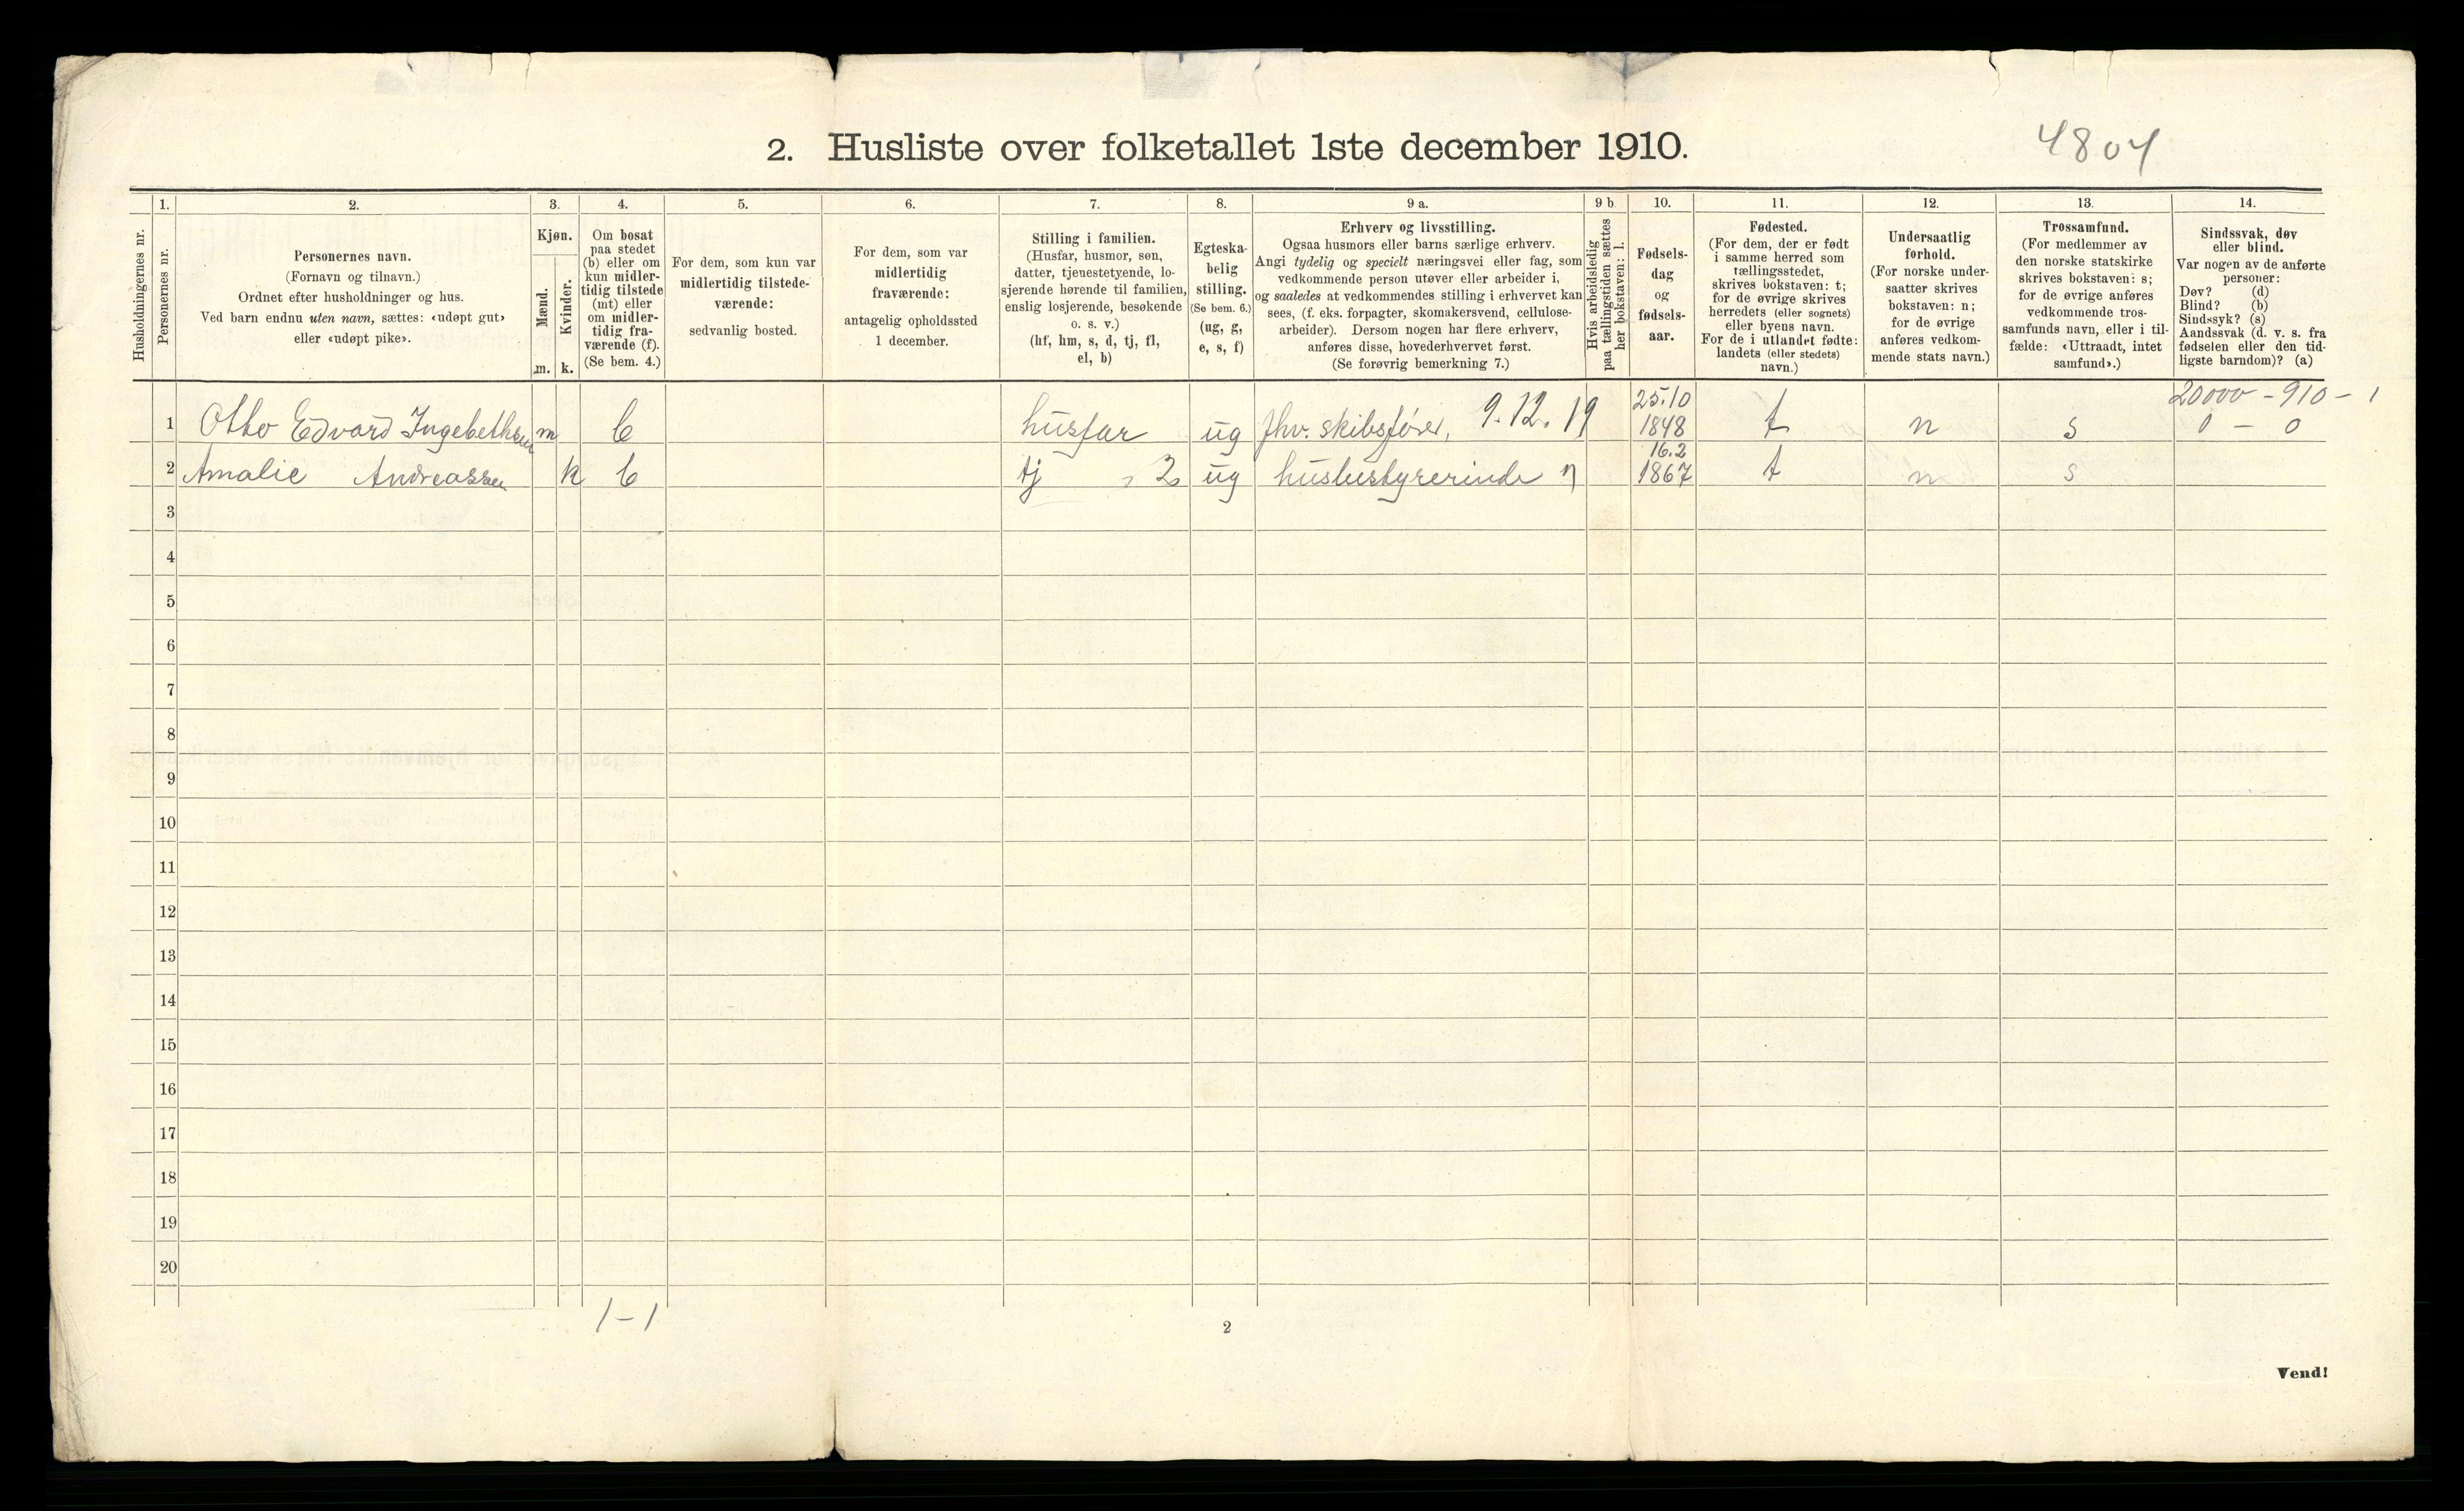 2. Husliste over folketallet 1ste december 1910.
4804
Husholdningernes nr.
1.
Personernes nr.
2.
Personernes navn.
(Fornavn og tilnavn.)
Ordnet efter husholdninger og hus.
Ved barn endnu uten navn, sættes: «udøpt gut»
eller «udøpt pike».
3.
Kjøn.
Mænd.
Kvinder.
m. k.
4.
Om bosat
paa stedet
(b) eller om
kun midler-
tidig tilstede
(mt) eller
om midler-
tidig fra-
værende (f).
(Se bem. 4.)
5.
For dem, som kun var
midlertidig tilstede-
værende:
sedvanlig bosted.
6.
For dem, som var
midlertidig
fraværende:
antagelig opholdssted
1 december.
7.
Stilling i familien.
(Husfar, husmor, søn,
datter, tjenestetyende, lo-
sjerende hørende til familien,
enslig losjerende, besøkende
o. s. v.)
(hf, hm, s, d, tj, fl,
el, b)
8.
Egteska-
belig
stilling.
(Se bem. 6.)
(ug, g,
e, s, f)
9 a.
Erhverv og livsstilling.
Ogsaa husmors eller barns særlige erhverv.
Angi tydelig og specielt næringsvei eller fag, som
vedkommende person utøver eller arbeider i,
og saaledes at vedkommendes stilling i erhvervet kan
sees, (f. eks. forpagter, skomakersvend, cellulose-
arbeider). Dersom nogen har flere erhverv,
anføres disse, hovederhvervet først.
(Se forøvrig bemerkning 7.)
9 b
Hvis arbeidsledig
paa tællingstiden sættes
her bokstaven: l.
10.
Fødsels-
dag
og
fødsels-
aar.
11.
Fødested.
(For dem, der er født
i samme herred som
tællingsstedet,
skrives bokstaven: t;
for de øvrige skrives
herredets (eller sognets)
eller byens navn.
For de i utlandet fødte:
landets (eller stedets)
navn.)
12.
Undersaatlig
forhold.
(For norske under-
saatter skrives
bokstaven: n;
for de øvrige
anføres vedkom-
mende stats navn.)
13.
Trossamfund.
(For medlemmer av
den norske statskirke
skrives bokstaven: s;
for de øvrige anføres
vedkommende tros-
samfunds navn, eller i til-
fælde: «Uttraadt, intet
samfund».)
14.
Sindssvak, døv
eller blind.
Var nogen av de anførte
personer:
Døv? (d)
Blind? (b)
Sindssyk? (s)
Aandssvak (d. v. s. fra
fødselen eller den tid-
ligste barndom)? (a)
20000 - 910 - 1
0 - 0
1 Otto Edvard Ingebethsen m b husfar ug fhv. skibsfører, 9.12.19 25.10 1848 t n s
2 Amalie Andreassen k b tj 2 ug husbestyrerinde 16.2 1867 t n s
3
4
5
6
7
8
9
10
11
12
13
14
15
16
17
18
19
20
1-1
2
Vend!